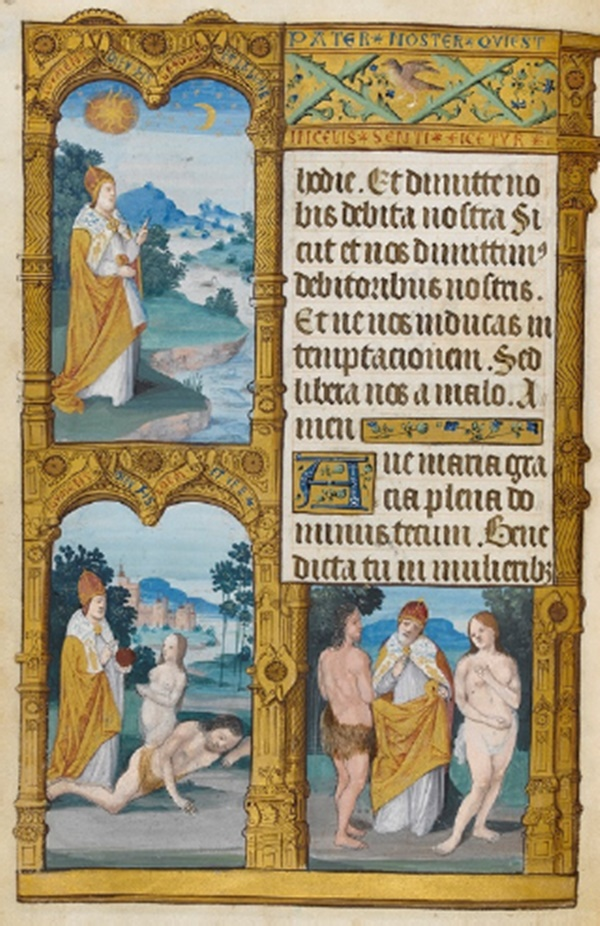 PATER * NOSTER * QVI EST
IN CELIS * SENTI * FICETVR
hodie. Et dimitte no
bis debita nostra Si
cut et nos dimittim⁹
debitoribus nostris.
Et ne nos inducas in
temptacionem. Sed
libera nos a malo. A
men
Aue maria gra
cia plena do
minus tecum. Bene
dicta tu in mulieribꝫ